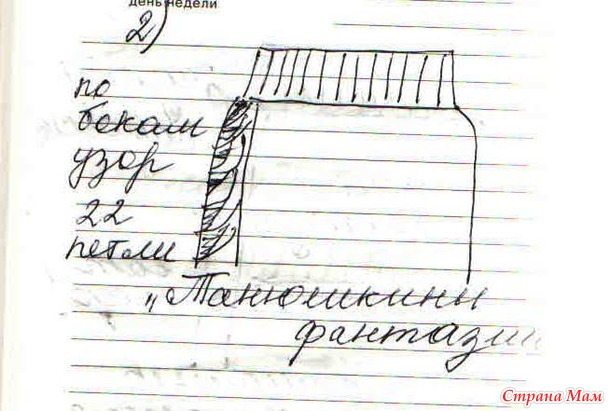 день недели
2)
по
бокам
узор
22
петли
„Танюшкины
фантазии
Страна Мам